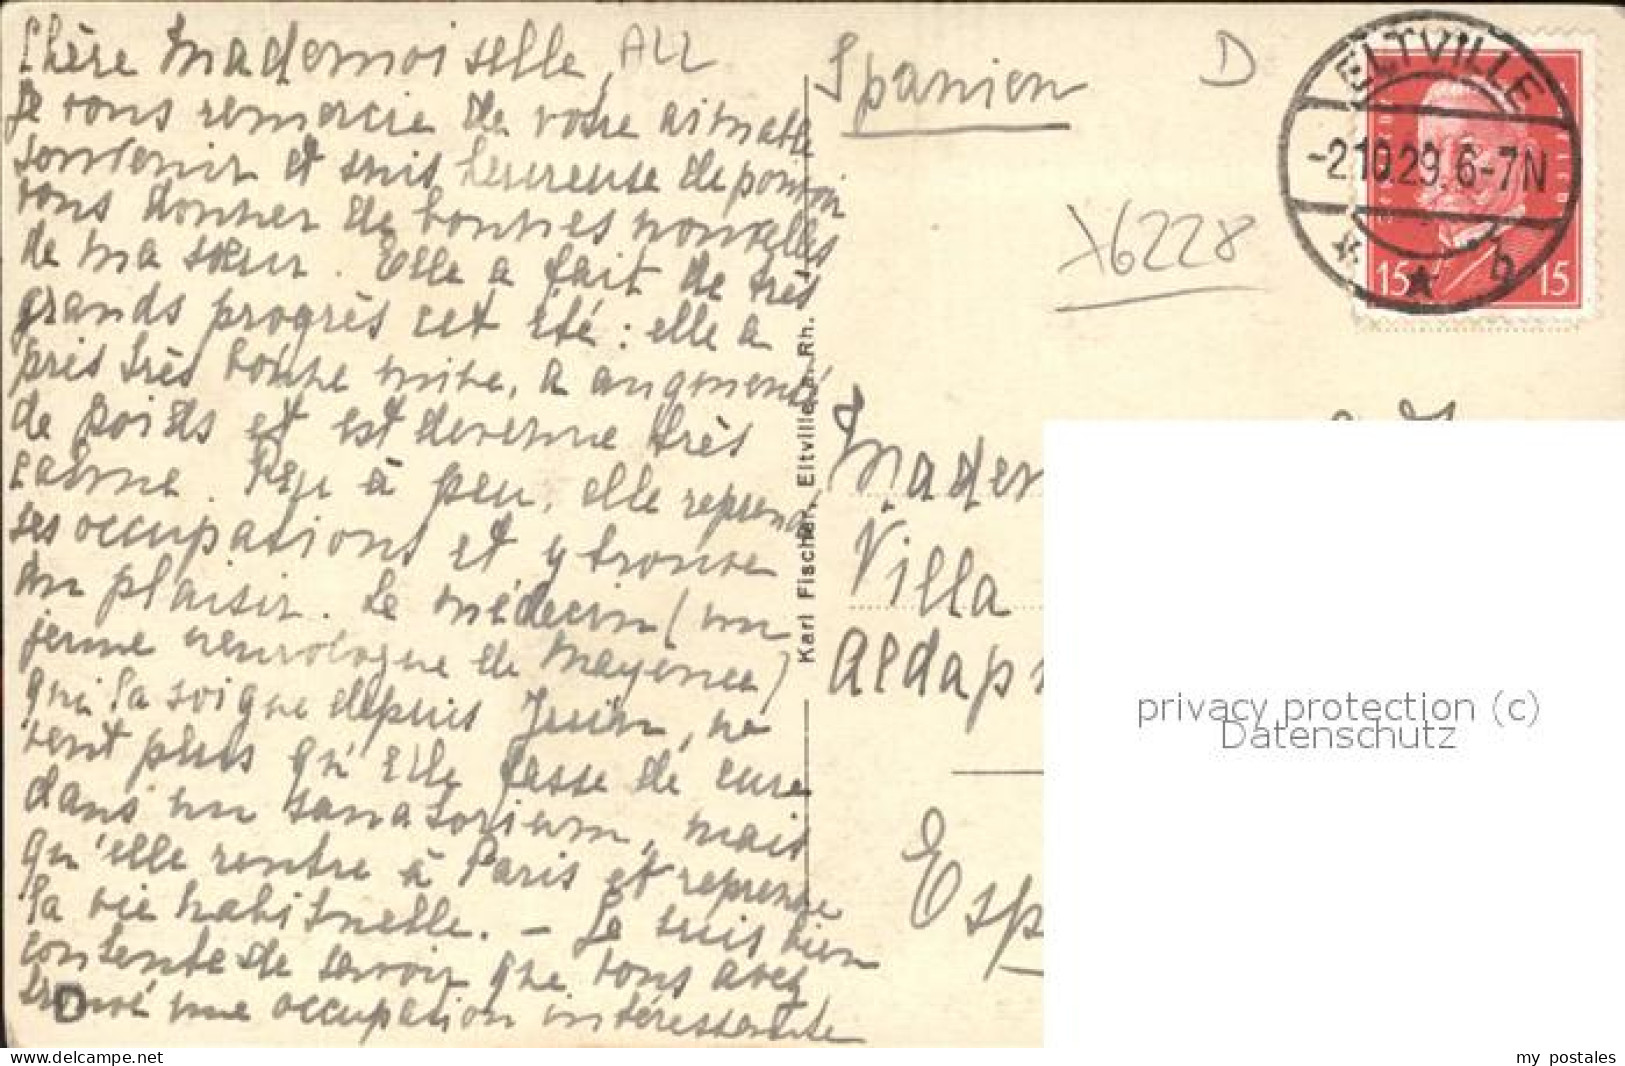 Chère Mademoiselle, A22
Je vous remercie de votre aimable
souvenir et suis heureuse de pouvoir
vous donner de bonnes nouvelles
de ma sœur. Elle a fait de très
grands progrès cet été: elle a
pris très bonne mine, a augmenté
de poids et est devenue très
calme. Peu à peu, elle reprend
ses occupations et y trouve
du plaisir. Le médecin (un
jeune neurologue de Mayence)
qui la soigne depuis Juin, ne
veut plus qu'elle fasse de cure
dans un sanatorium, mais
qu'elle rentre à Paris et reprenne
la vie habituelle. - Je suis bien
contente de savoir que vous avez
trouvé une occupation intéressante
D
Karl Fischer, Eltville a. Rh.
Spanien
D
X6228
ELTVILLE
-2.10.29. 6-7N
* b
15 15
Madem
Villa
Aldap
Esp
privacy protection (c)
Datenschutz
www.delcampe.net
my_postales